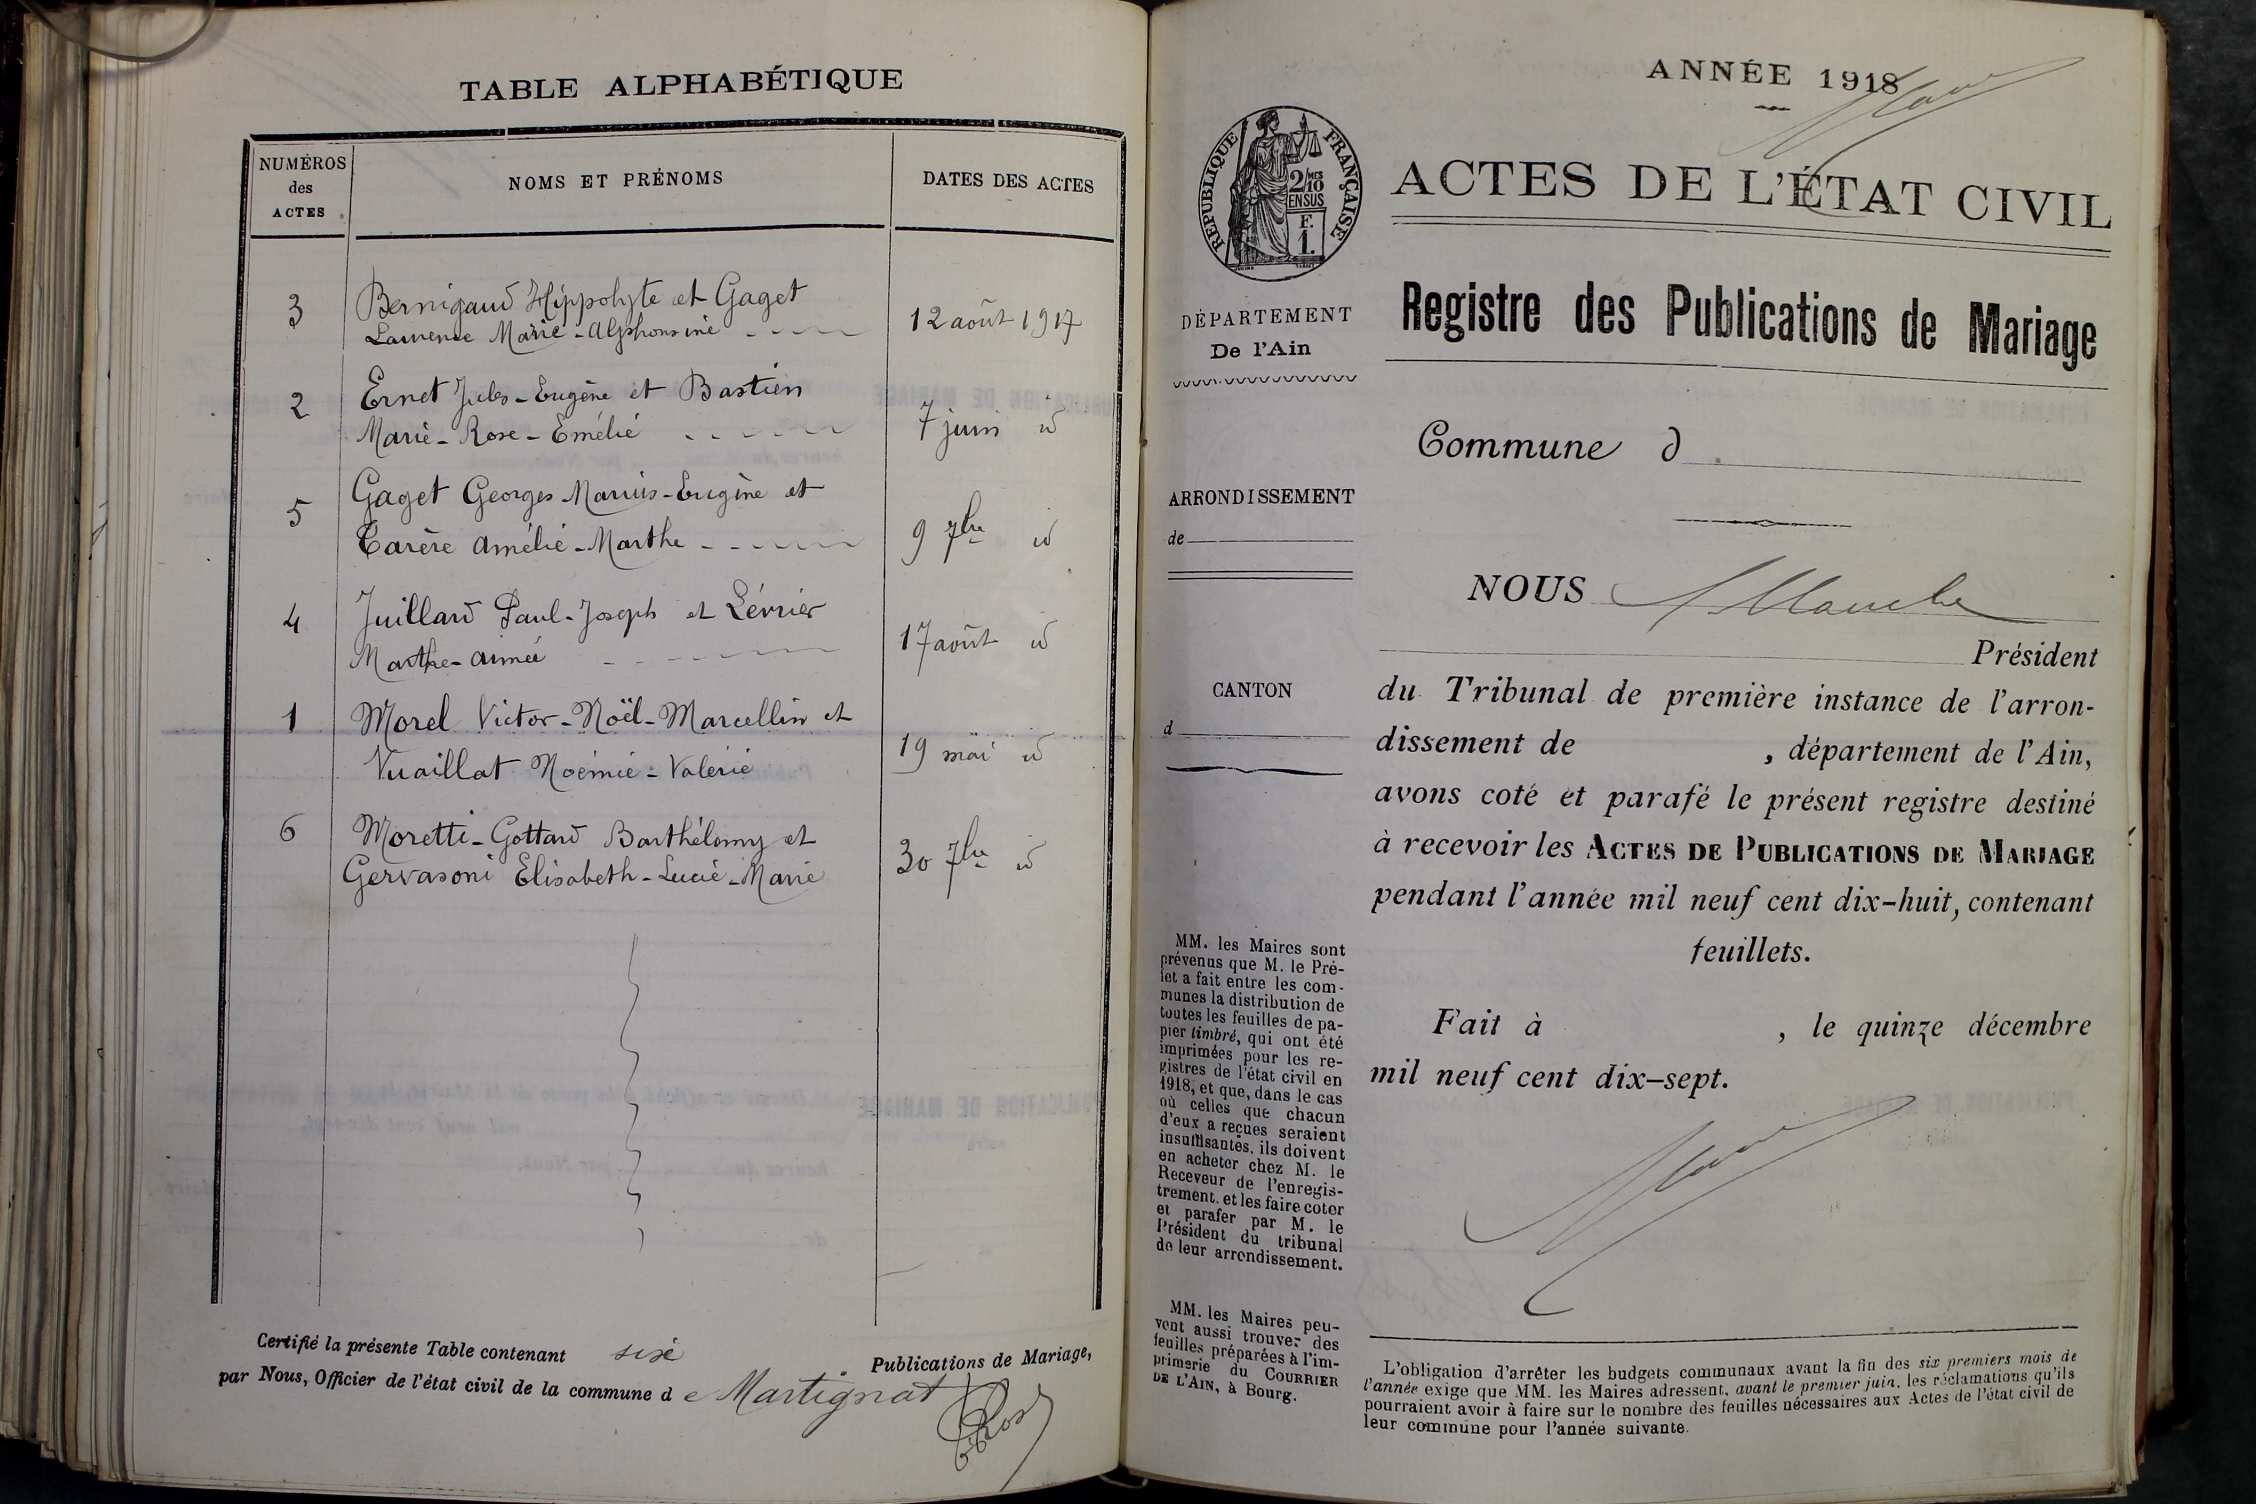 TABLE ALPHABÉTIQUE
NUMÉROS des ACTES
NOMS ET PRÉNOMS
DATES DES ACTES
3 Bernigaud Hippolyte et Gaget
Laurence Marie-Alphonsine 12 août 1917
2 Ernet Jules-Eugène et Bastien
Marie-Rose-Emélie 7 juin id
5 Gaget Georges-Marius-Eugène et
Carère Amélie-Marthe 9 7bre id
4 Juillard Paul-Joseph et Lévrier
Marthe-Aimée 17 août id
1 Morel Victor-Noël-Marcellin et
Vuaillat Noémie-Valérie 19 mai id
6 Moretti-Gottard Barthélemy et
Gervasoni Elisabeth-Lucie-Marie 30 7bre id
Certifié la présente Table contenant sixe Publications de Mariage,
par Nous, Officier de l'état civil de la commune de Martignat
ANNÉE 1918
RÉPUBLIQUE FRANÇAISE
2/10 MES
EN SUS
F.
1.
ACTES DE L'ÉTAT CIVIL
Registre des Publications de Mariage
DÉPARTEMENT
De l'Ain
Commune d
ARRONDISSEMENT
de
NOUS
Président
CANTON
d
du Tribunal de première instance de l'arron-
dissement de , département de l'Ain,
avons coté et parafé le présent registre destiné
à recevoir les ACTES DE PUBLICATIONS DE MARIAGE
pendant l'année mil neuf cent dix-huit, contenant
feuillets.
Fait à , le quinze décembre
mil neuf cent dix-sept.
MM. les Maires sont
prévenus que M. le Pré-
fet a fait entre les com-
munes la distribution de
toutes les feuilles de pa-
pier timbré, qui ont été
imprimées pour les re-
gistres de l'état civil en
1918, et que, dans le cas
où celles que chacun
d'eux a reçues seraient
insuffisantes, ils doivent
en acheter chez M. le
Receveur de l'enregis-
trement, et les faire coter
et parafer par M. le
Président du tribunal
de leur arrondissement.
MM. les Maires peu-
vent aussi trouver des
feuilles préparées à l'im-
primerie du COURRIER
DE L'AIN, à Bourg.
L'obligation d'arrêter les budgets communaux avant la fin des six premiers mois de
l'année exige que MM. les Maires adressent, avant le premier juin, les réclamations qu'ils
pourraient avoir à faire sur le nombre des feuilles nécessaires aux Actes de l'état civil de
leur commune pour l'année suivante.